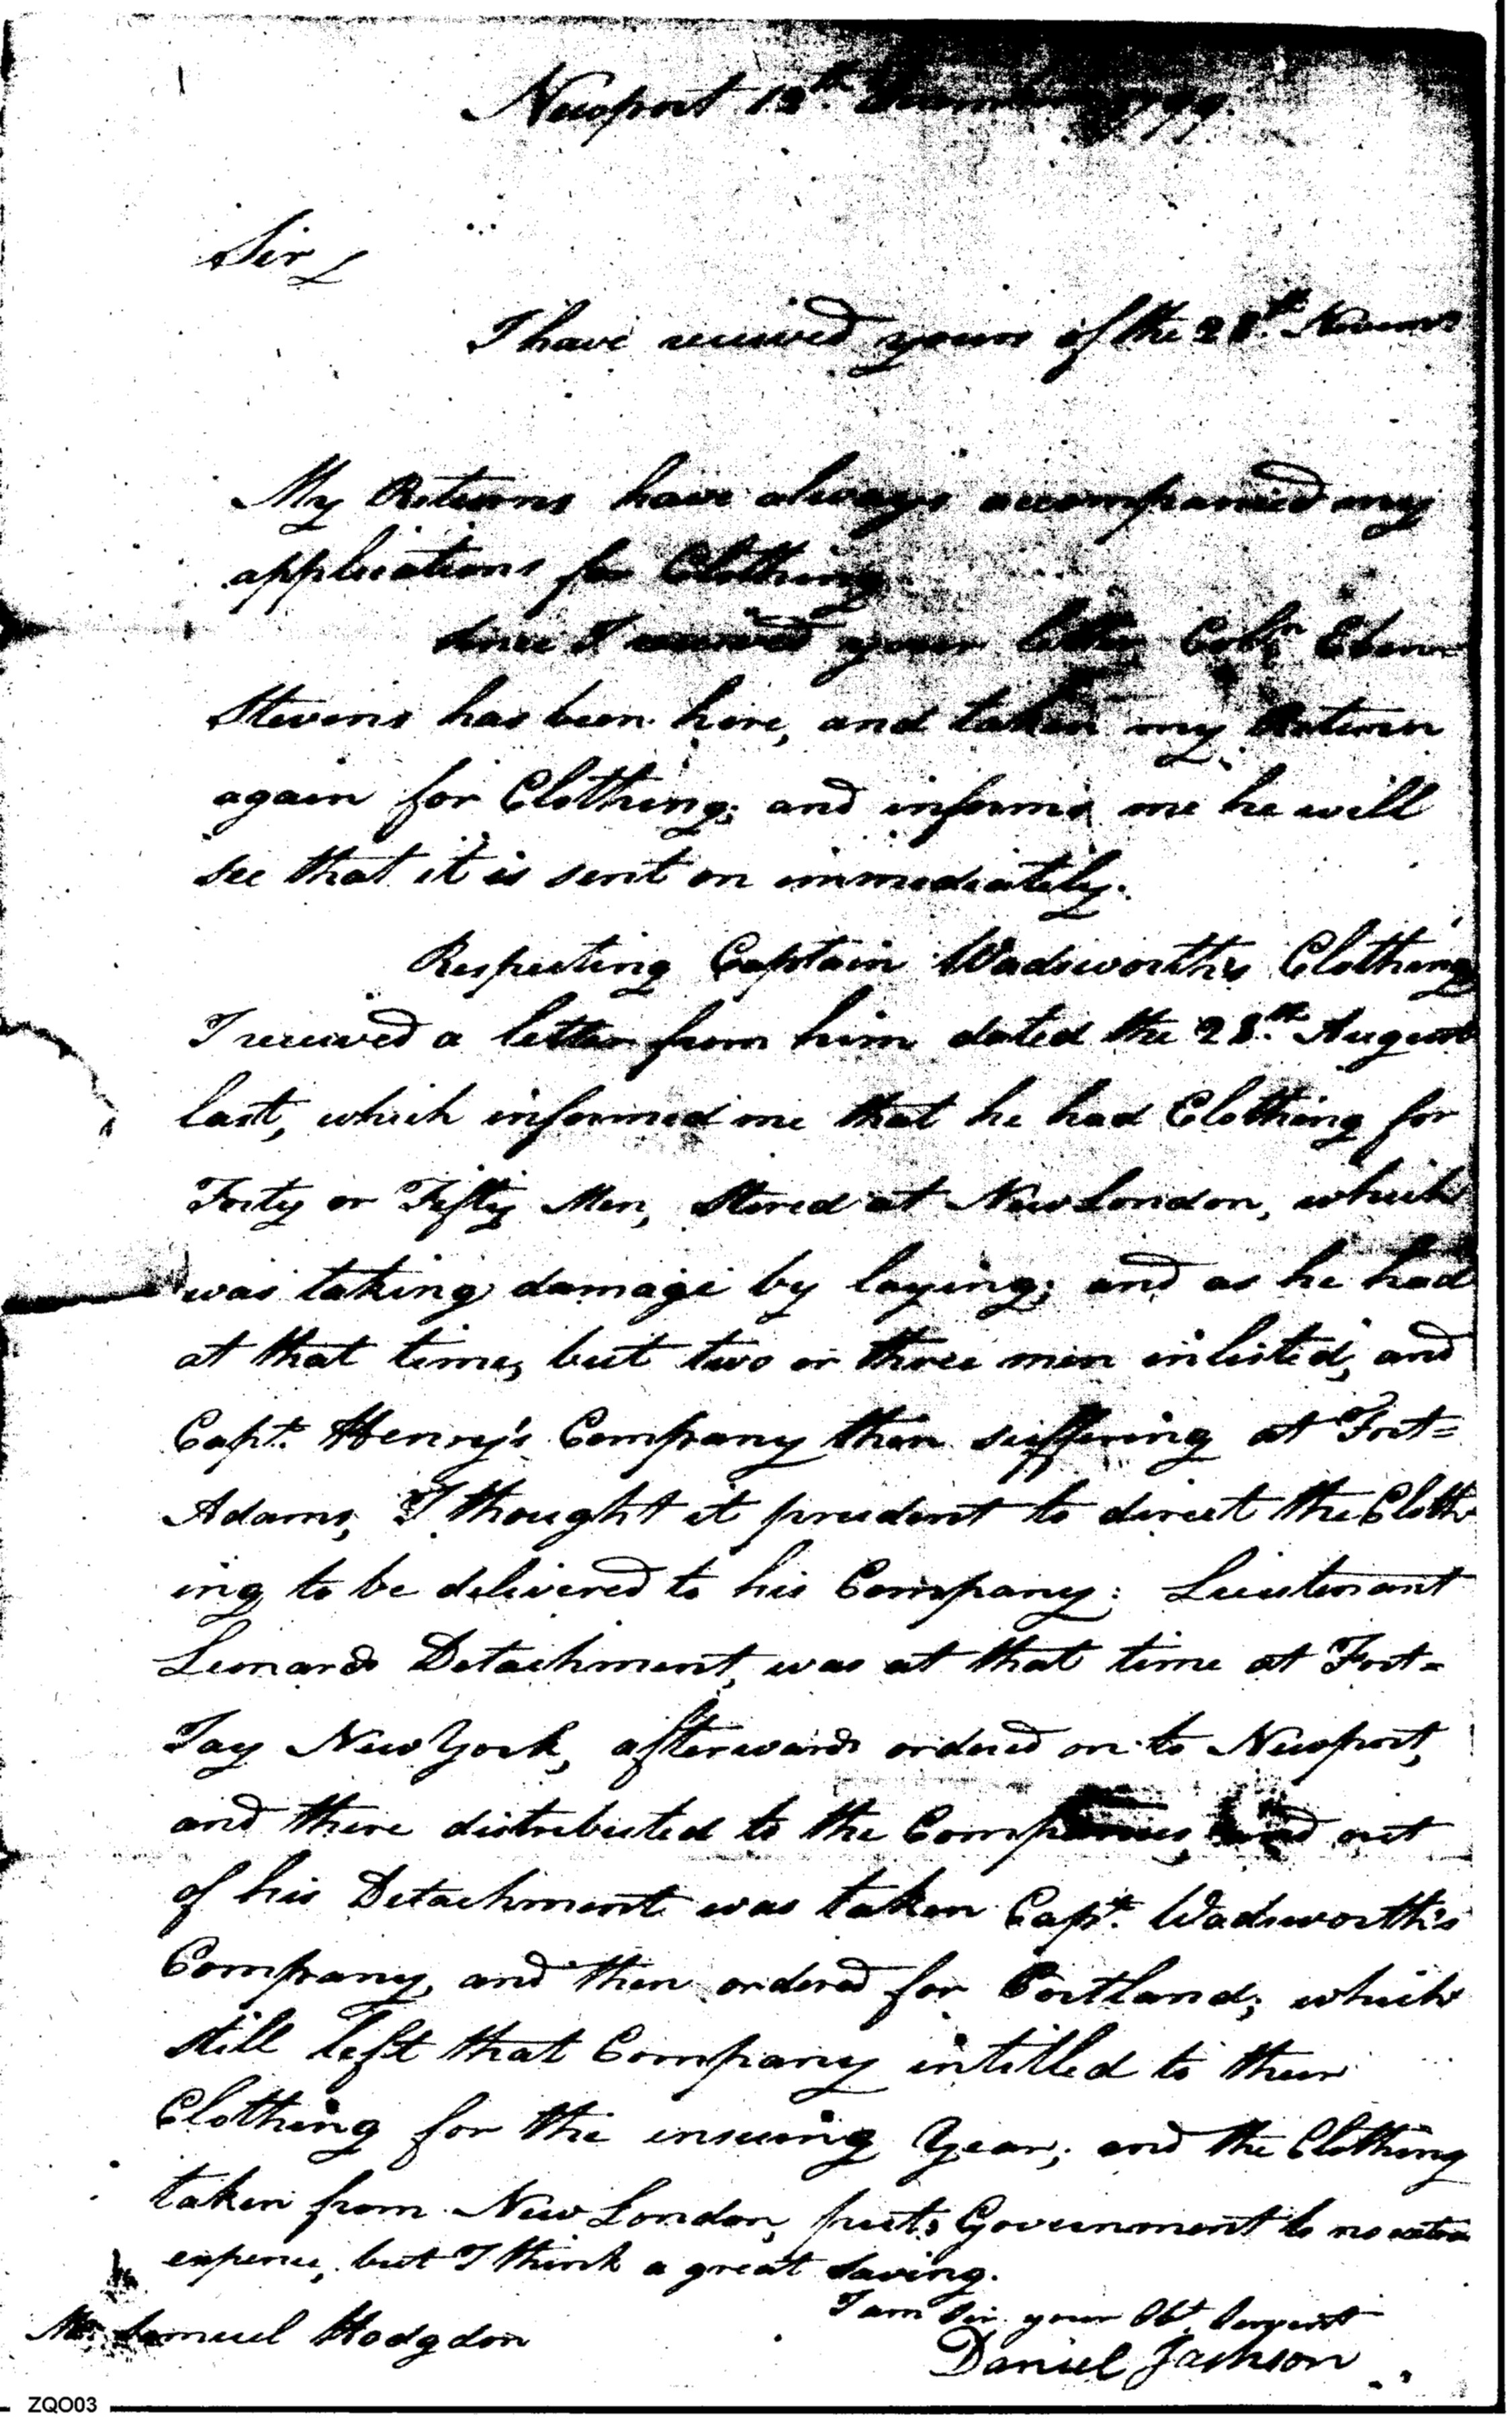 Newport 12th December 1799.
Sir
I have received yours of the 28th Novemr
My Returns have always accompanied my
applications for Clothing
Since I received your letter Coln Eben
Stevens has been here, and taken my Return
again for Clothing; and informs me he will
see that it is sent on immediately.
Respecting Captain Wadsworth's Clothing
I received a letter from him dated the 28th August
last, which informed me that he had Clothing for
Forty or Fifty Men, Stored at New London, which
was taking damage by laying; and as he had
at that time, but two or three men inlisted, and
Capt. Henry's Company then suffering at Fort=
Adams, I thought it prudent to direct the Cloth
ing to be delivered to his Company: Lieutenant
Leonards Detachment, was at that time at Fort=
Jay New York, afterwards ordered on to Newport,
and there distributed to the Companies, and out
of his Detachment was taken Capt. Wadsworth's
Company, and then ordered for Portland; which
still left that Company intitled to their
Clothing for the insuing Year; and the Clothing
taken from New London, puts Government to no extra
expence, but I think a great saving.
I am Sir your Obt. Servant
Mr. Samuel Hodgdon
Daniel Jackson
ZQO03